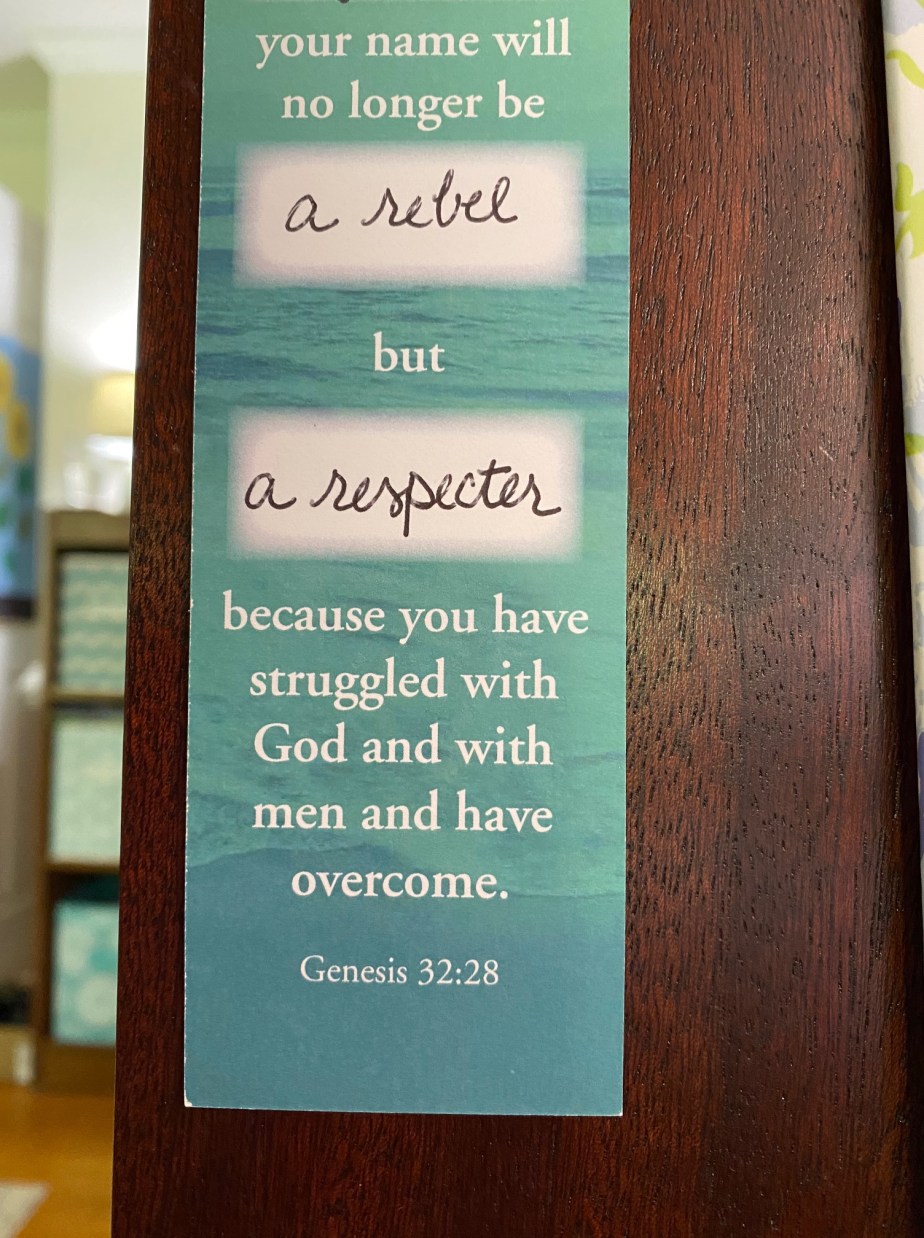 your name will
no longer be
a rebel
but
a respecter
because you have
struggled with
God and with
men and have
overcome.
Genesis 32:28